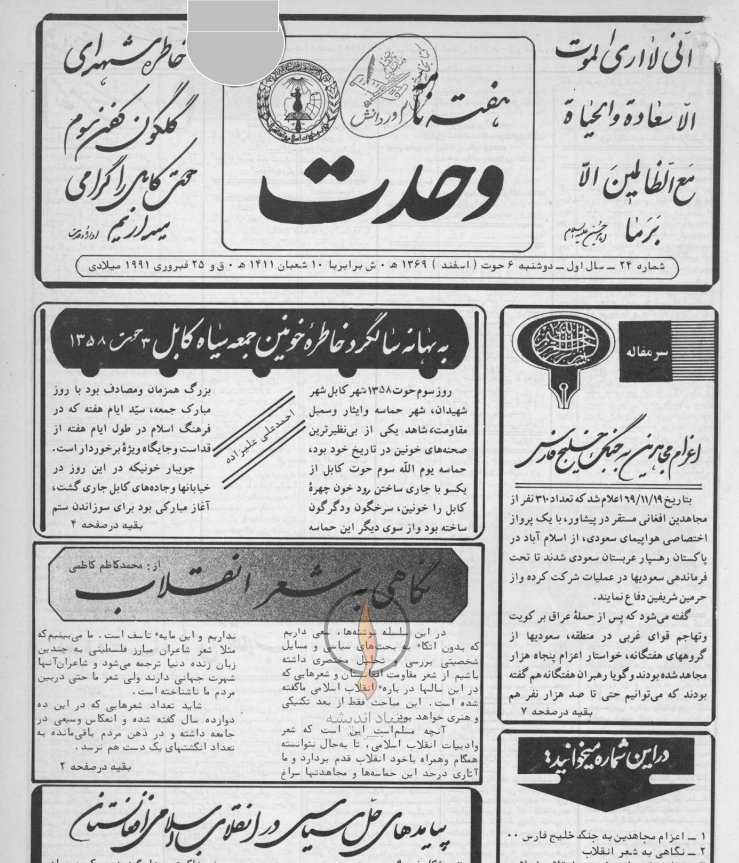 انی لا اری الموت
الا سعادة والحیاة
مع الظالمین الا
برما
هفته نامه
وحدت
خاطره شهدای
گلگون کفن سوم
حوت کابل را گرامی
میداریم
شماره ۲۴ ــ سال اول ــ دوشنبه ۶ حوت ( اسفند ) ۱۳۶۹ هـ . ش برابر با ۱۰ شعبان ۱۴۱۱ هـ . ق و ۲۵ فبروری ۱۹۹۱ میلادی
سرمقاله
اعزام مجاهدین به جنگ خلیج فارس
بتاریخ ۶۹/۱۱/۱۹ اعلام شد که تعداد ۳۱۰ نفر از
مجاهدین افغانی مستقر در پیشاور، با یک پرواز
اختصاصی هواپیمای سعودی، از اسلام آباد در
پاکستان رهسپار عربستان سعودی شدند تا تحت
فرماندهی سعودیها در عملیات شرکت کرده و از
حرمین شریفین دفاع نمایند.
گفته می‌شود که پس از حملهٔ عراق بر کویت
وتهاجم قوای غربی در منطقه، سعودیها از
گروههای هفتگانه، خواستار اعزام پنجاه هزار
مجاهد شده بودند و گویا رهبران هفتگانه هم گفته
بودند که می‌توانیم حتی تا صد هزار نفر هم
بقیه در صفحه ۷
به بهانه سالگرد خاطرهٔ خونین جمعه سیاه کابل ۳ حوت ۱۳۵۸
احمدعلی علیزاده
روز سوم حوت ۱۳۵۸ شهر کابل شهر
شهیدان، شهر حماسه وایثار وسمبل
مقاومت، شاهد یکی از بی‌نظیرترین
صحنه‌های خونین در تاریخ خود بود،
حماسه یوم الله سوم حوت کابل از
یکسو با جاری ساختن رود خون چهرهٔ
کابل را خونین، سرخگون ودگرگون
ساخته بود واز سوی دیگر این حماسه
بزرگ همزمان ومصادف بود با روز
مبارک جمعه، سیّد ایام هفته که در
فرهنگ اسلام در طول ایام هفته از
قداست وجایگاه ویژهٔ برخوردار است.
جویبار خونیکه در این روز در
خیابانها وجاده‌های کابل جاری گشت،
آغاز مبارکی بود برای سوزاندن ستم
بقیه در صفحه ۴
نگاهی به شعر انقلاب
از : محمدکاظم کاظمی
در این سلسله نوشته‌ها، سعی داریم
که بدون اتکاء به بحث‌های سیاسی و مسایل
شخصیتی بررسی و تحلیل مختصری داشته
باشیم از شعر مقاومت افغانستان و شعرهایی که
در این سالها در باره انقلاب اسلامی ما گفته
شده است . این مباحث فقط از بعد تکنیکی
و هنری خواهد بود.
آنچه مسلم است این است که شعر
وادبیات انقلاب اسلامی، تا به‌حال نتوانسته
همگام وهمراه باخود انقلاب قدم بردارد و ما
آثاری درحد این حماسه‌ها و مجاهدتها سراغ
نداریم و این مایهٔ تاسف است . ما می‌بینیم که
مثلا شعر شاعران مبارز فلسطینی به چندین
زبان زنده دنیا ترجمه می‌شود و شاعران آنها
شهرت جهانی دارند ولی شعر ما حتی دربین
مردم ما ناشناخته است .
شاید تعداد شعرهایی که در این ده
دوازده سال گفته شده و انعکاس وسیعی در
جامعه داشته و در ذهن مردم باقی‌مانده به
تعداد انگشتهای یک دست هم نرسد .
بقیه درصفحه ۲
بنیاد اندیشه
در این شماره میخوانید:
۱ ــ اعزام مجاهدین به جنگ خلیج فارس ..
۲ ــ نگاهی به شعر انقلاب
پیامدهای حل سیاسی در انقلاب اسلامی افغانستان